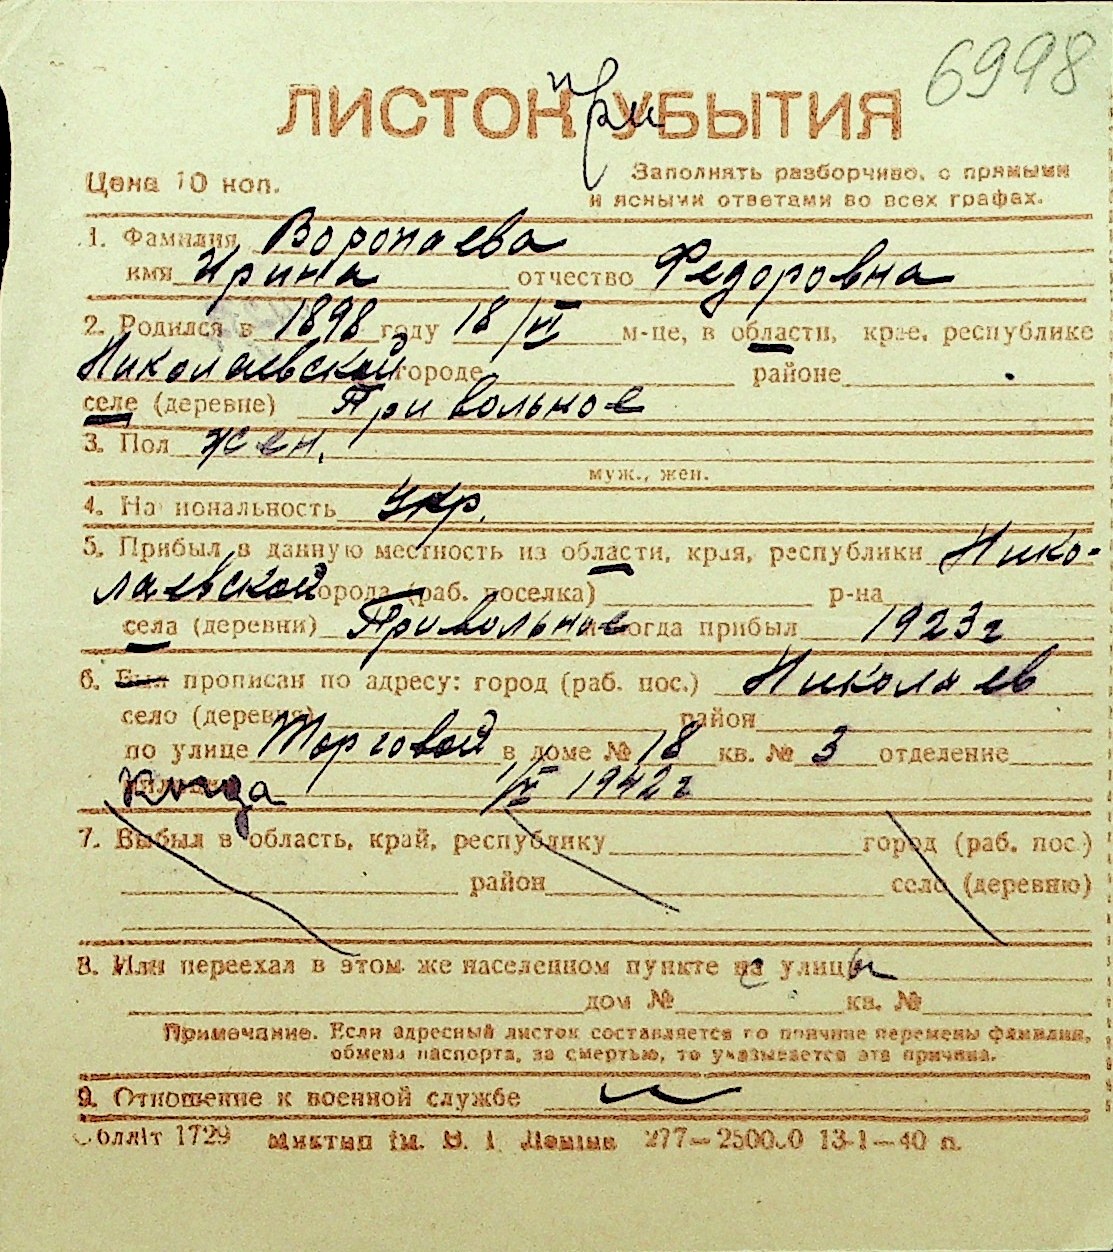 6998
ЛИСТОК ПриБЫТИЯ
Цена 10 коп.
Заполнять разборчиво, с прямыми
и ясными ответами во всех графах.
1. Фамилия Воропаева
имя Ирина отчество Федоровна
2. Родился в 1898 году 18/VI м-це, в области, крае, республике
Николаевской городе районе
селе (деревне) Привольное
3. Пол жен.
муж., жен.
4. Национальность Укр.
5. Прибыл в данную местность из области, края, республики Нико-
лаевской города (раб. поселка) р-на
села (деревни) Привольное и когда прибыл 1923 г
6. Был прописан по адресу: город (раб. пос.) Николаев
село (деревня) район
по улице Торговой в доме № 18 кв. № 3 отделение
Когда 1942 г
7. Выбыл в область, край, республику город (раб. пос.)
район село (деревню)
8. Или переехал в этом же населенном пункте с улицы
дом № кв. №
Примечание. Если адресный листок составляется по причине перемены фамилии,
обмена паспорта, за смертью, то указывается эта причина.
9. Отношение к военной службе
Облліт 1729 Миктип ім. В. І. Леніна 277—25000 13-1—40 п.